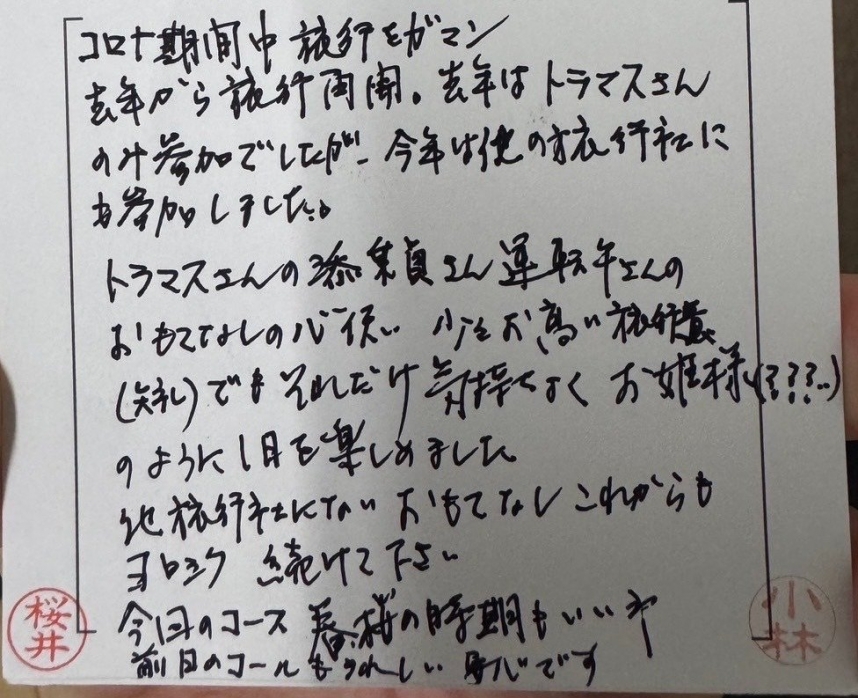 コロナ期間中旅行をガマン
去年から旅行再開。去年はトラマスさん
のみ参加でしたが、今年は他の旅行社に
も参加しました。
トラマスさんの添乗員さん運転手さんの
おもてなしの心使い 少々お高い旅行費
(失礼)でもそれだけ気持ちよく お姫様(???..)
のように1日を楽しめました
他旅行社にない おもてなし これからも
ヨロシク 続けて下さい
今回のコース 春、桜の時期もいいや
前日のコールもうれしい 呼び です
桜井
小林